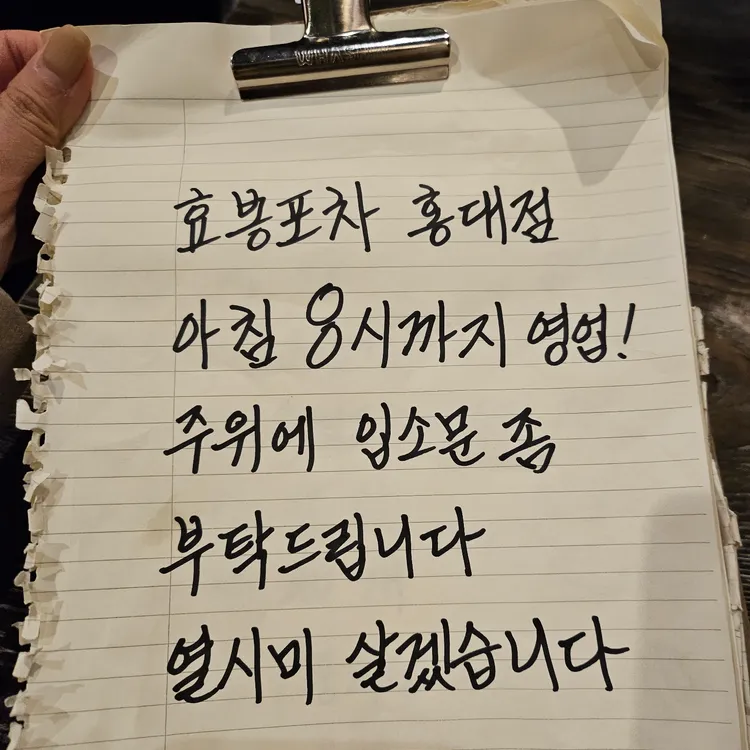 효봉포차 홍대점
아침 8시까지 영업!
주위에 입소문 좀
부탁드립니다
열시미 살겠습니다